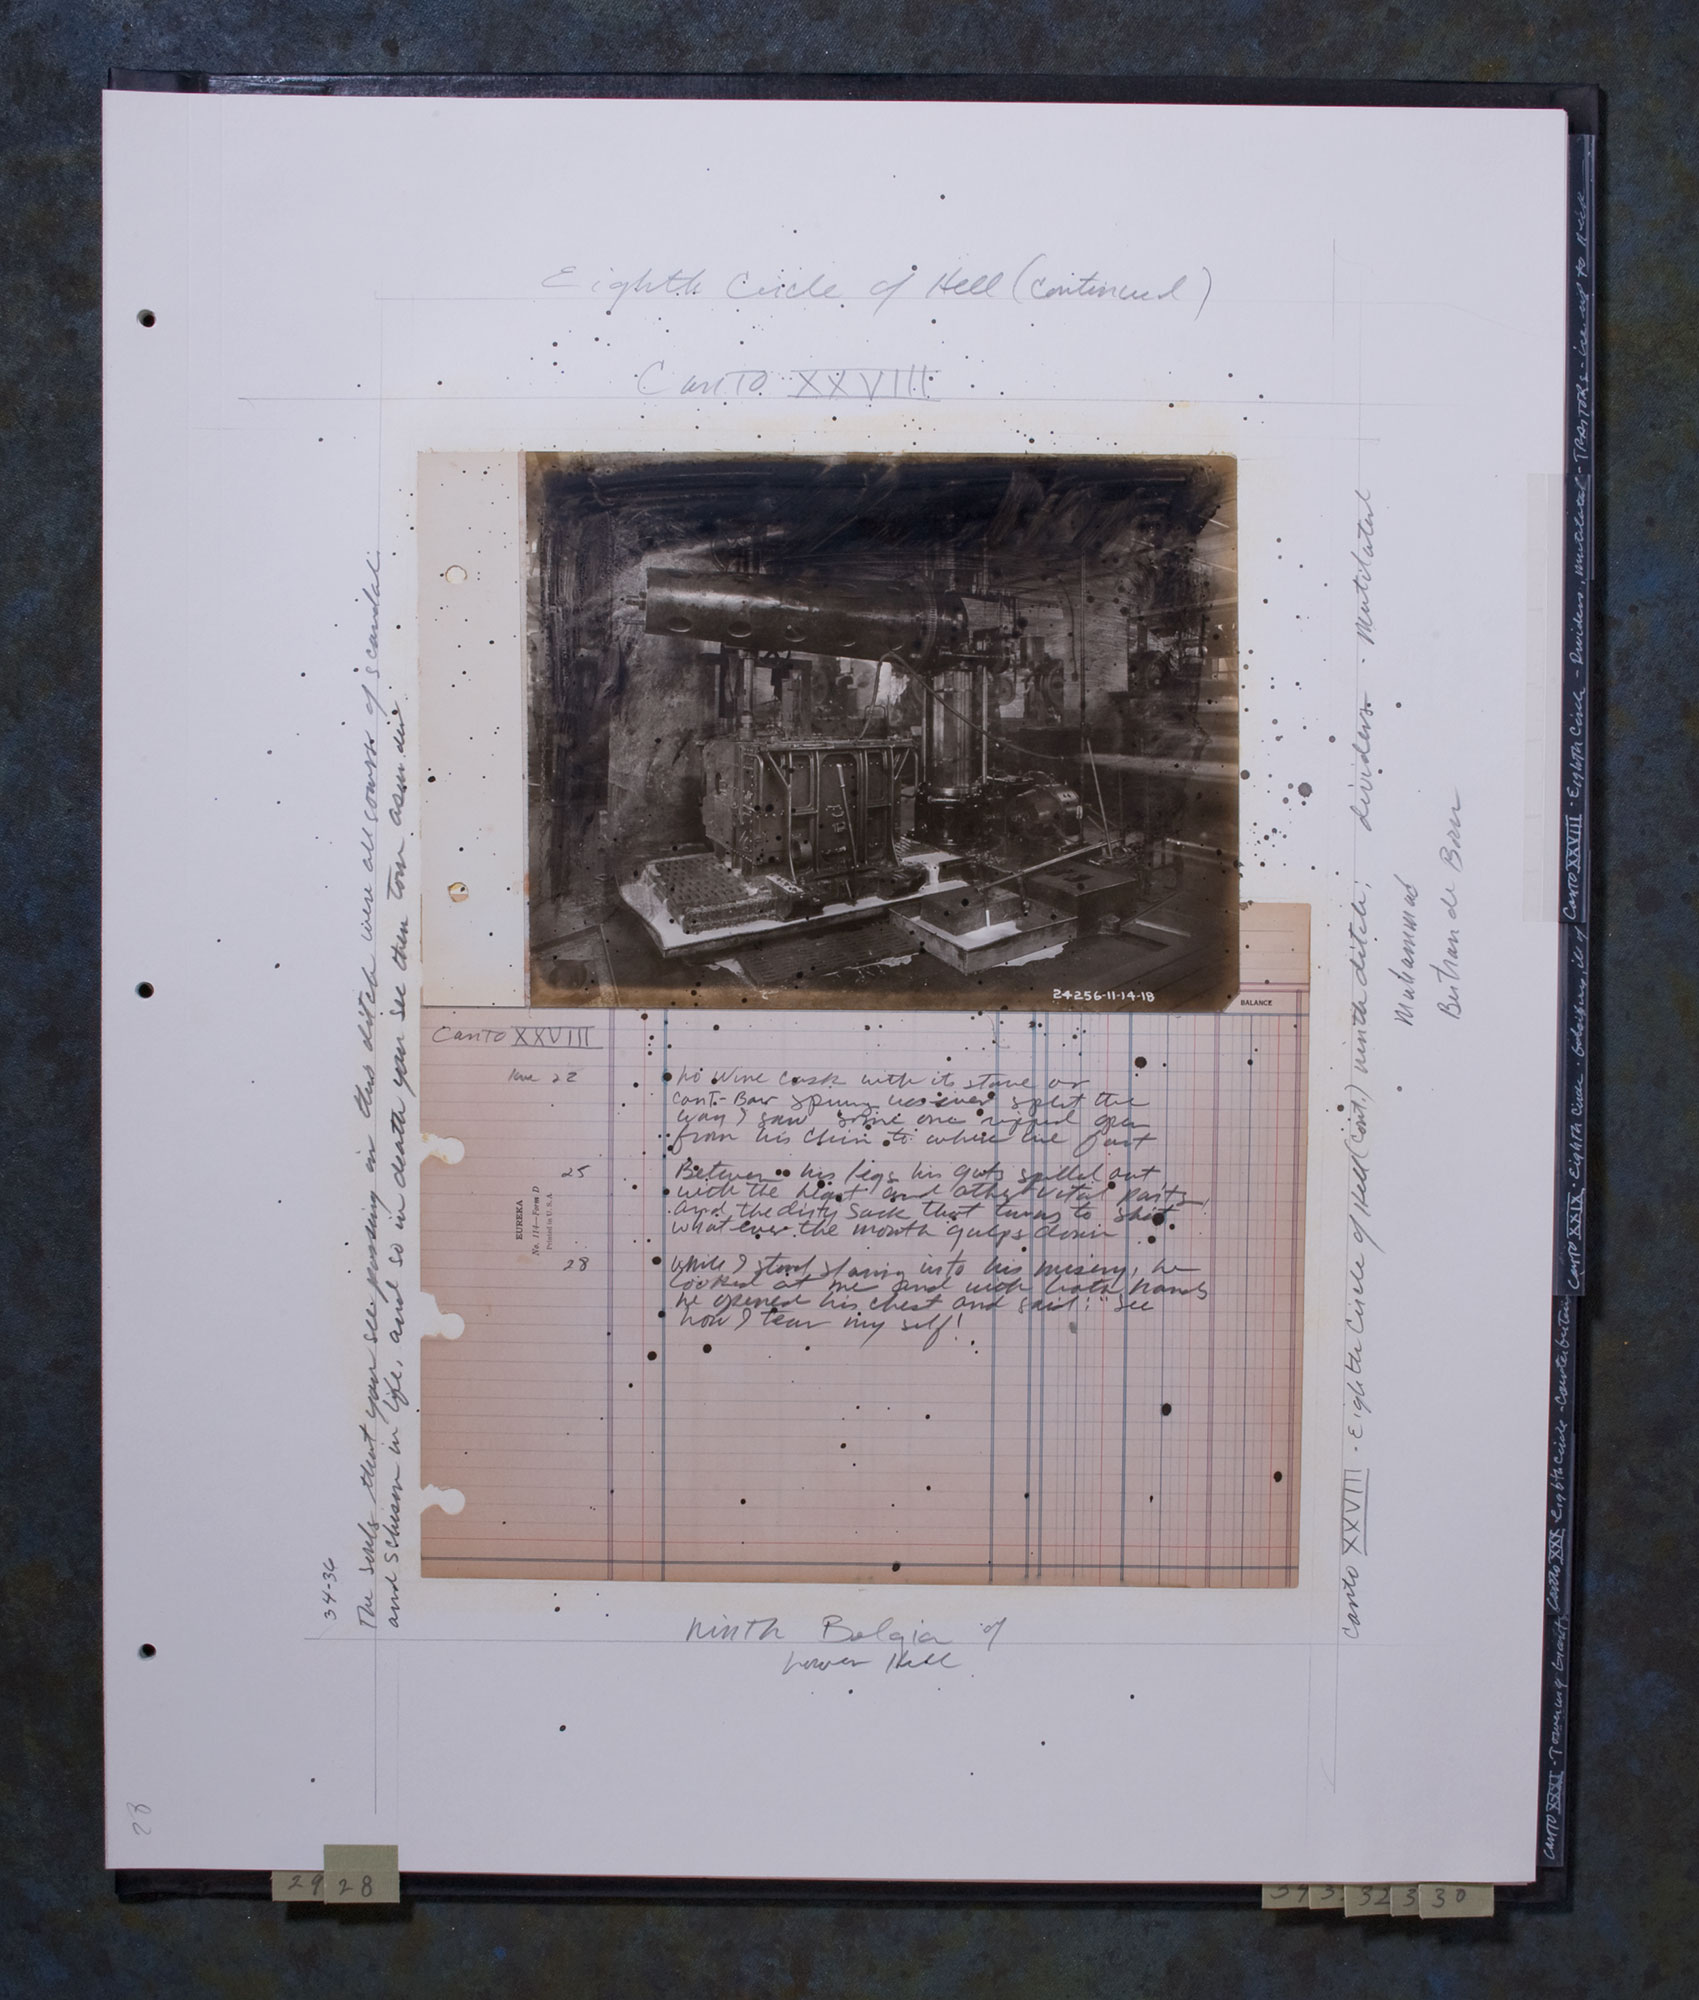 Eighth Circle of Hell (continued)
Canto XXVIII
24256-11-14-18
BALANCE
Canto XXVIII
line 22
No wine cask with its stave or
cant-Bar sprung was ever split the
way I saw some one ripped open
from his chin to where we fart
25
Between his legs his guts spilled out
with the heart and other vital parts
and the dirty sack that turns to shit
what ever the mouth gulps down
28
While I stood staring into his misery, he
looked at me and with both hands
he opened his chest and said: "See
how I tear my self!
EUREKA
No. 114—Form D
Printed in U.S.A
Ninth Bolgia of
Lower Hell
34-36
The souls that you see passing in this ditch were all sowers of scandal
and schism in life, and so in death you see them torn asunder
Canto XXVIII - Eighth Circle of Hell (cont.) ninth ditch; dividers - Mutilated
Muhammad
Bertran de Born
Canto XXXI - Towering Giants
Canto XXX Eighth Circle - Counterfeiters
Canto XXIX - Eighth Circle -
Canto XXVIII - Eighth Circle - Dividers, mutilated -
28
29
28
34
3
32
3
30